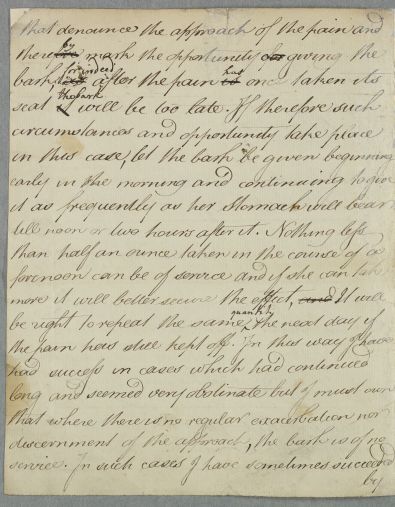 that denounce the approach of the pain and
thereby mark the opportunity for giving the
bark, for indeed after the pain has once taken its
seat the bark will be too late. If therefore such
circumstances and opportunity take place
in this case, let the bark be given beginning
early in the morning and continuing to give
it as frequently as her Stomach will bear
till noon or two hours after it. Nothing less
than half an ounce taken in the course of a
forenoon can be of service and if she can take
more it will better secure the effect, and It will
be right to repeat the same quantity the next day if
the pain has still kept off. In this way I have
had success in cases which had continued
long and seemed very obstinate but I must own
that where there is no regular exacerbation nor
discernment of the approach, the bark is of no
service. In such cases I have sometimes succeeded
by